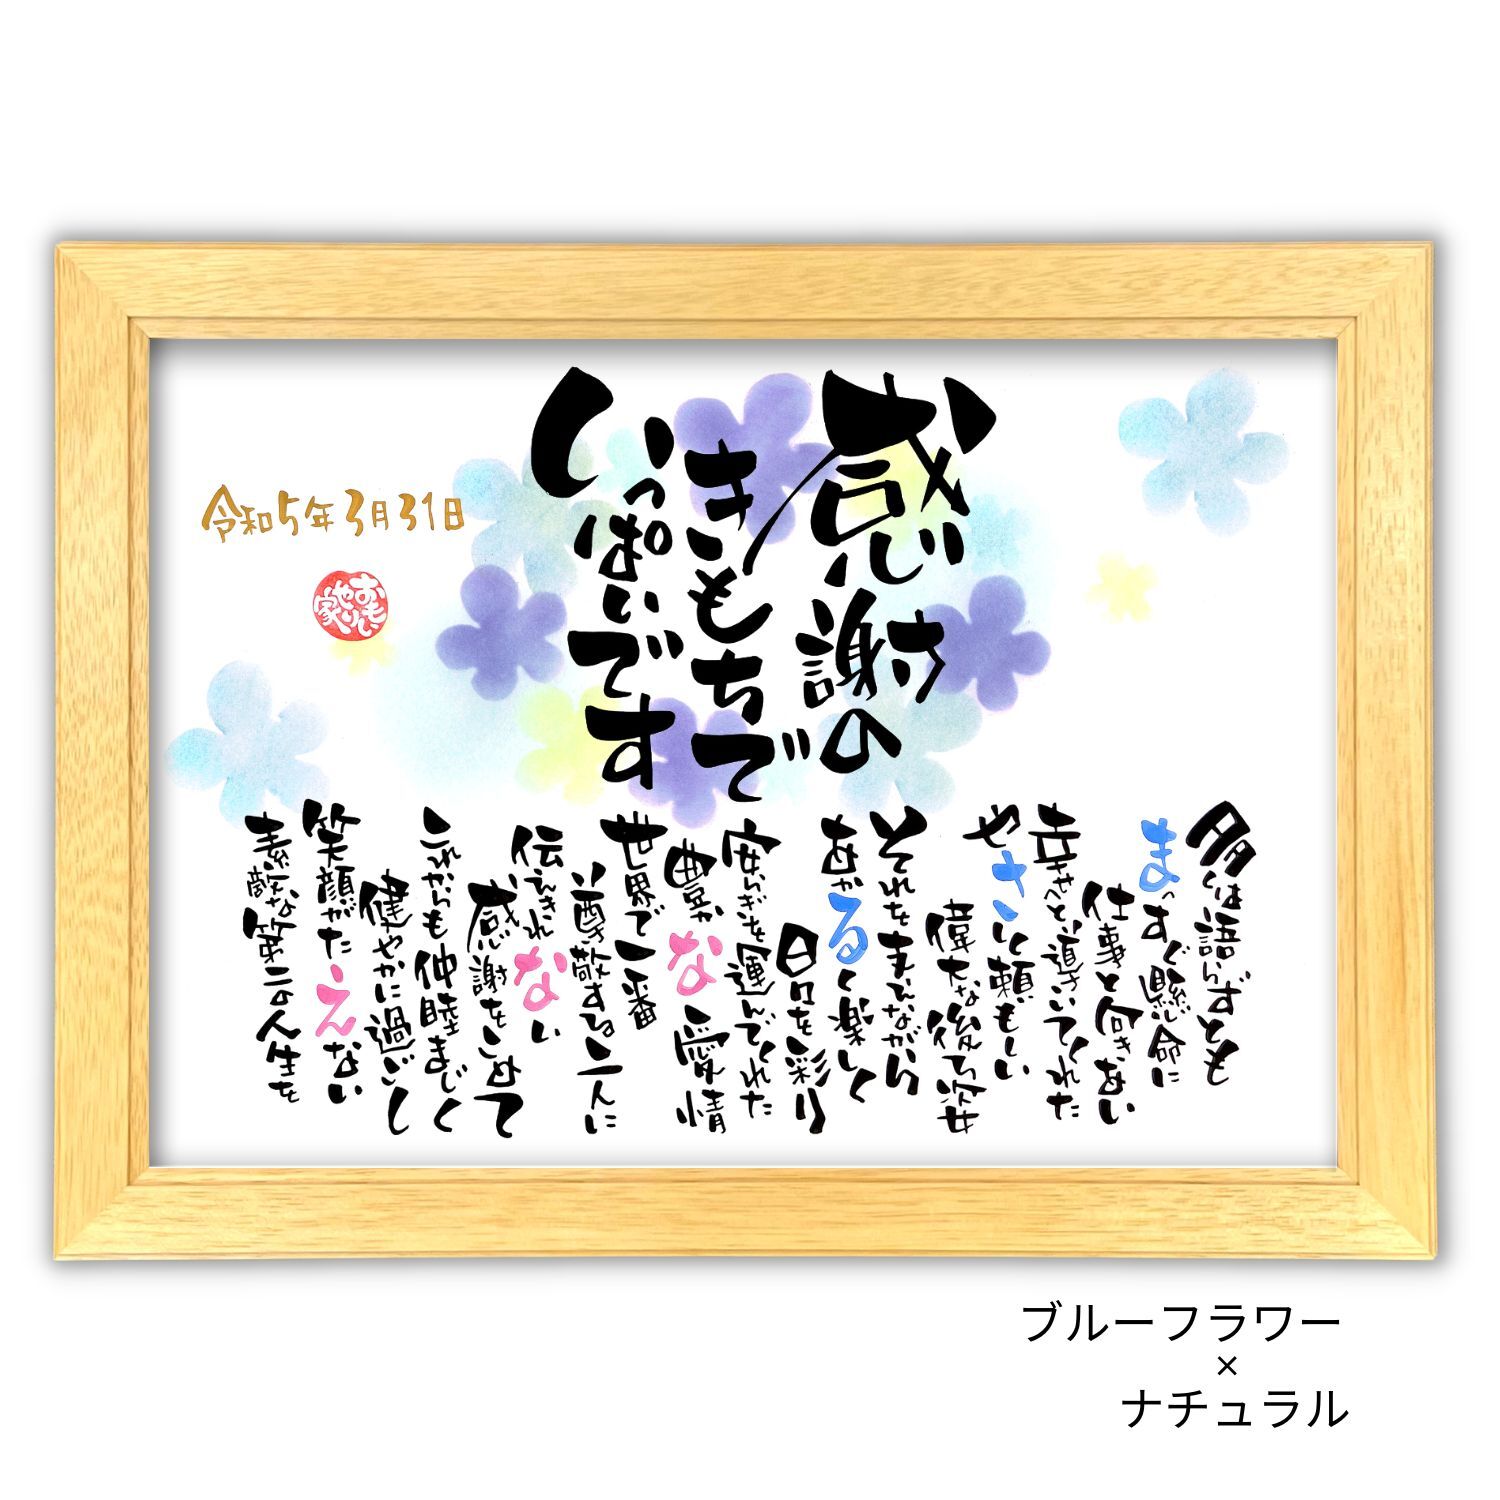 感謝の
きもちで
いっぱいです
令和5年3月31日
おもいやり家
多くは語らずとも
まっすぐ懸命に
仕事と向きあい
幸せへと導いてくれた
やさしく頼もしい
偉大な後ろ姿
それをまといながら
あかるく楽しく
日々を彩り
安らぎを運んでくれた
豊かな愛情
世界で一番
尊敬する二人に
伝えきれない
感謝をこめて
これからも仲睦まじく
健やかに過ごし
笑顔がたえない
素敵な第二の人生を
ブルーフラワー
×
ナチュラル